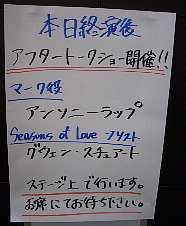 本日終演後
アフタートークショー開催!!
マーク役
アンソニーラップ
Seasons of Love ソリスト
グウェン・スチュアート
ステージ上で行います。
お席にてお待ち下さい。